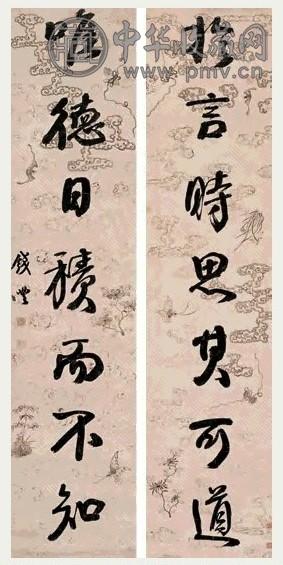 中华收藏网
www.pmv.cn
於言時思其可道
唯德日積而不知
錢灃